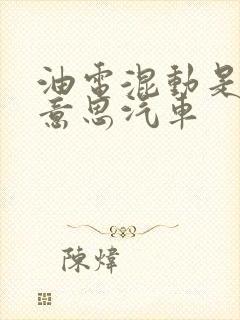 油電混動是
意思汽車
陳煒